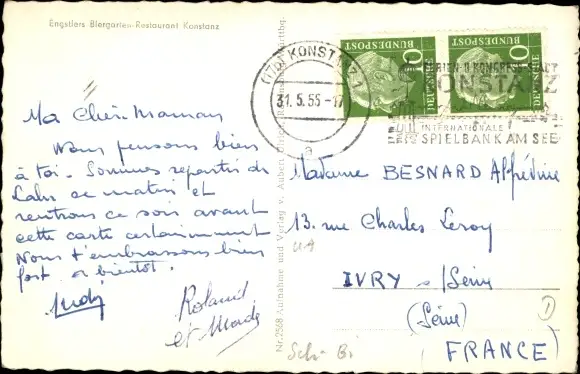 Engstlers Biergarten-Restaurant Konstanz
Ma Chère Maman
Nous pensons bien
à toi. Sommes repartis de
Lahr ce matin et
rentrons ce soir avant
cette carte certainement
Nous t'embrassons bien
fort. a bientôt.
Roland
et Made
Nr. 2368 Aufnahme und Verlag v.
(17b) KONSTANZ 1
31.5.55-17
a
DEUTSCHE BUNDESPOST
10
DEUTSCHE BUNDESPOST
10
FERIEN-U. KONGRESS-STADT
KONSTANZ
INTERNATIONALE
SPIELBANK AM SEE
Madame BESNARD Alfrédine
13. rue Charles Leroy
IVRY s/Seine
(Seine)
FRANCE)